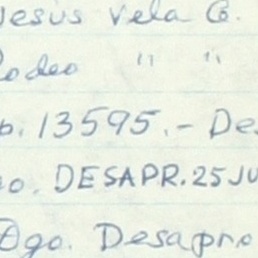 Jesus Vela Co.
Rodeo " "
p. 13595.- Des
go. DESAPR. 25 JU
Dgo. Desapro